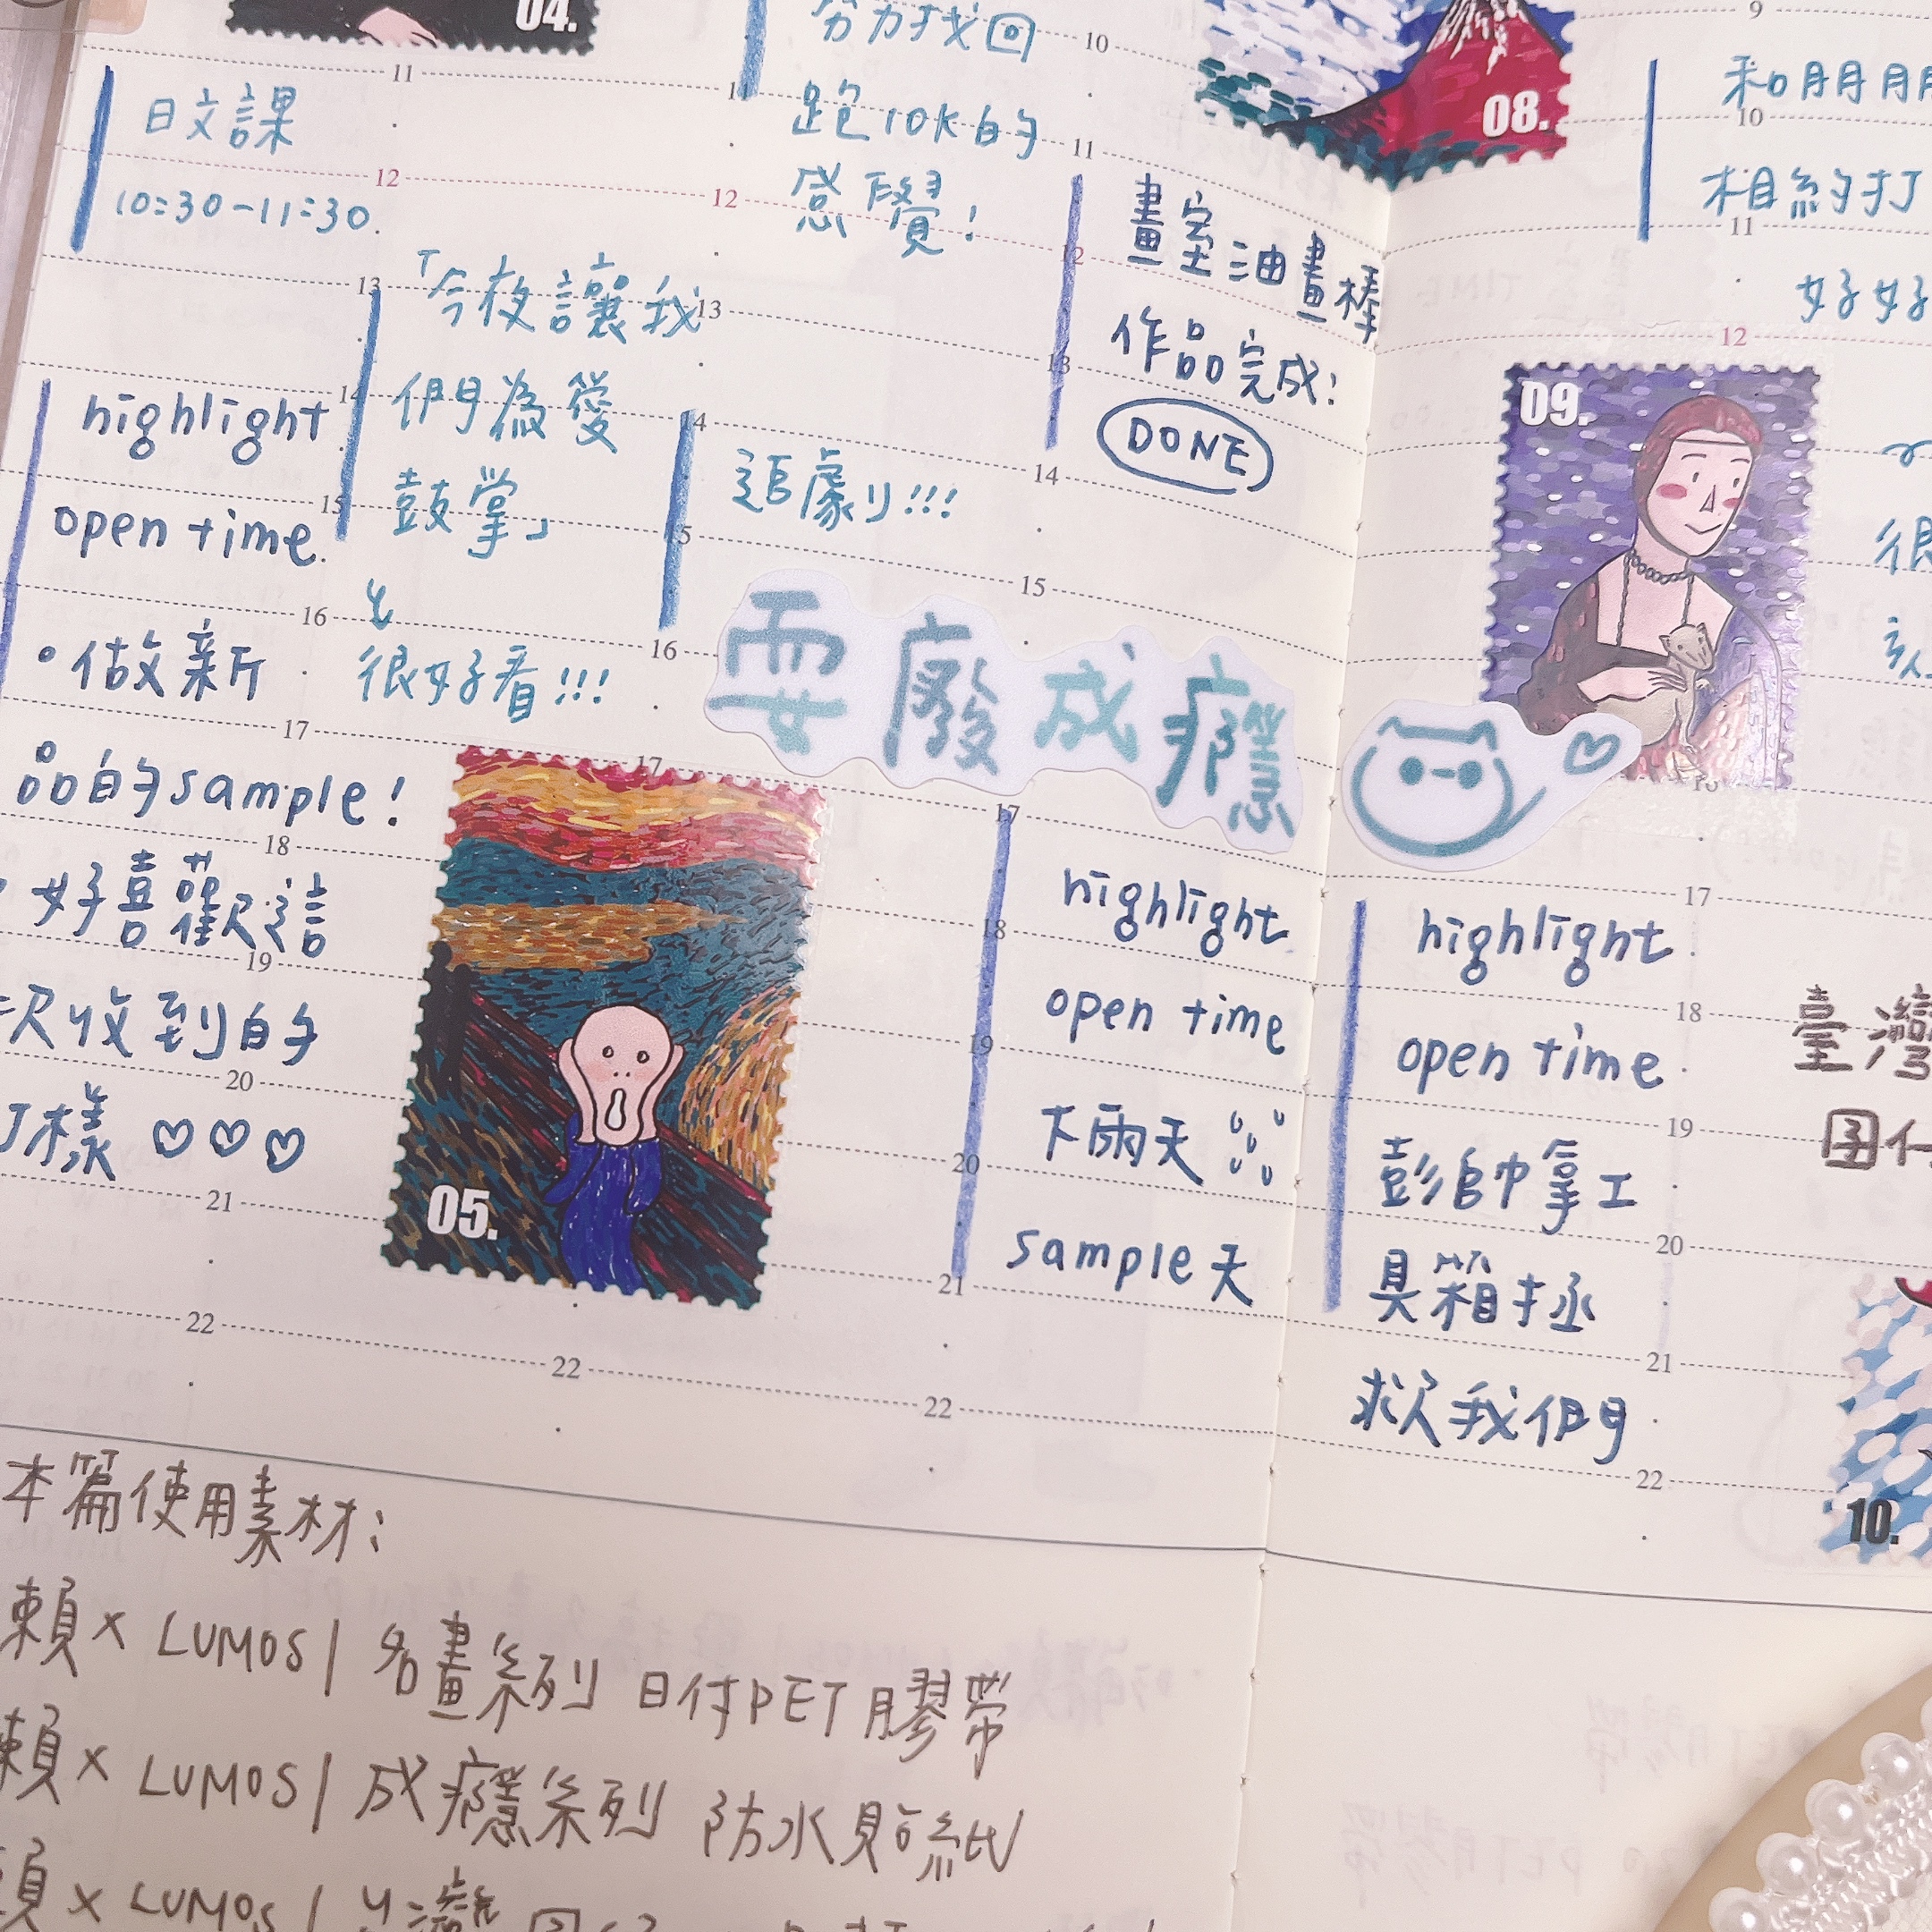 04.
11
日文課
12
10:30-11:30
13
14
highlight
open time
15
16
•做新
17
品的sample!
18
好喜歡這
19
次收到的
20
打樣♡♡♡
21
22
「今夜讓我
們為愛
鼓掌」
很好看!!!
17
05.
22
努力找回
跑10K的
感覺!
11
12
13
14
追劇!!!
15
16
耍廢成癮
17
18
19
20
21
22
10
11
08.
畫室油畫棒
12
13
作品完成!
DONE
14
15
highlight
open time
下雨天
sample天
9
和朋朋
10
相約打
11
好好
12
09.
16
17
highlight
18
open time
19
彭帥拿工
20
具箱拯
21
救我們
22
很
臺灣
10.
本篇使用素材:
賴×LUMOS|名畫系列 日付PET膠帶
賴×LUMOS|成癮系列 防水貼紙
×LUMOS|